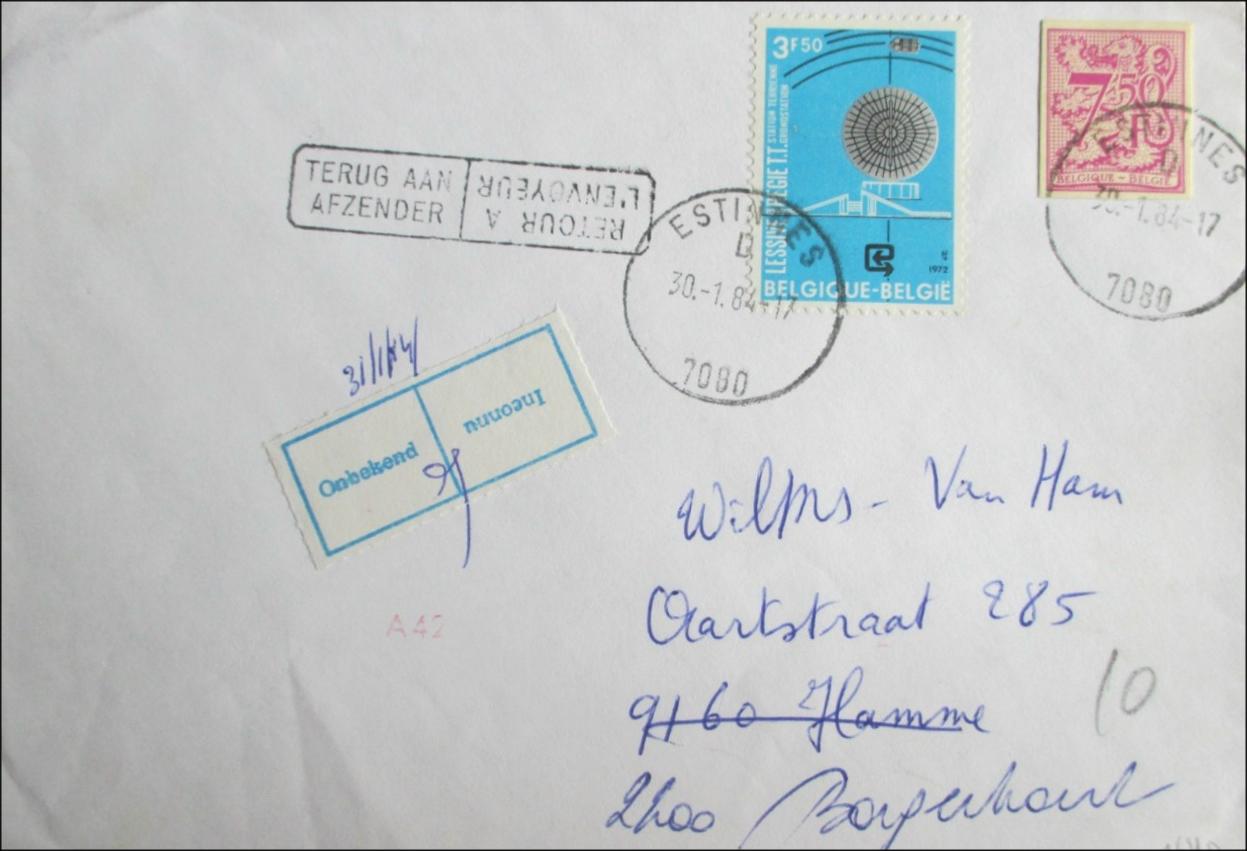 3F50
LESSIVE REGIE T.T. STATION TERRIENNE
GRONDSTATION
1972
BELGIQUE-BELGIË
7,50
Fr
BELGIQUE - BELGIË
TERUG AAN
AFZENDER
RETOUR A
L'ENVOYEUR
ESTINNES
D
30.-1.84-17
7080
ESTINNES
D
30.-1.84-17
7080
31/1/84
Onbekend
Inconnu
A42
Wilms - Van Ham
Aartstraat 285
9160 Hamme
10
2200 Borgerhout